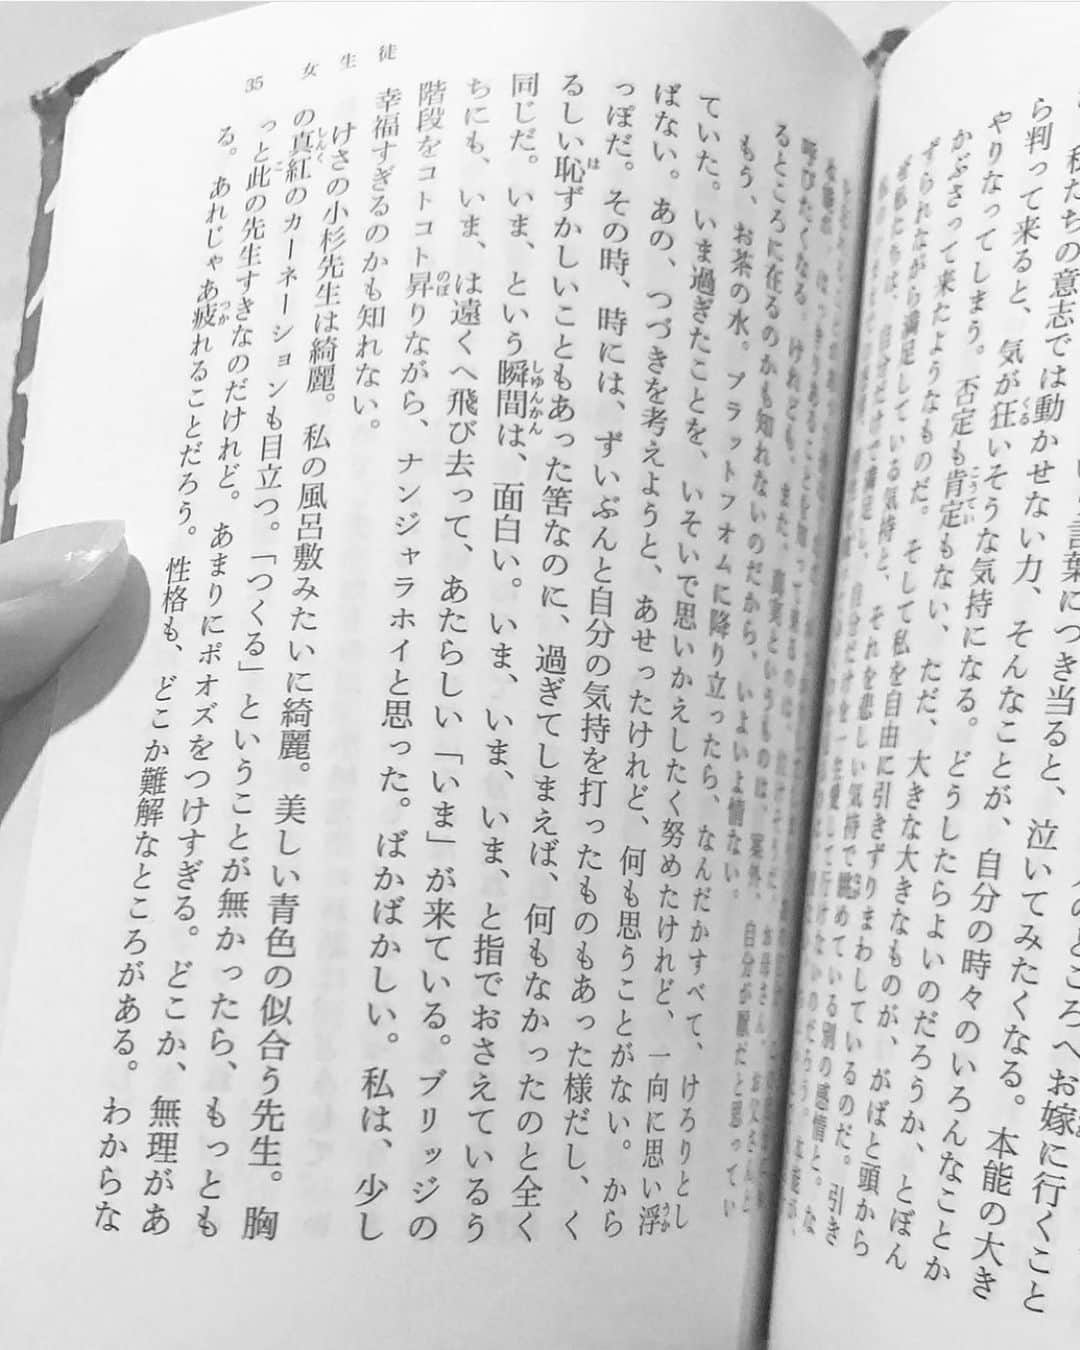 人のところへお嫁に行くこと
言葉につき当ると、泣いてみたくなる。本能の大き
私たちの意志では動かせない力、そんなことが、自分の時々のいろんなことか
ら判って来ると、気が狂いそうな気持になる。どうしたらよいのだろうか、とぼん
やりなってしまう。否定も肯定もない、ただ、大きな大きなものが、がばと頭から
かぶさって来たようなものだ。そして私を自由に引きずりまわしているのだ。引き
ずられながら満足している気持と、それを悲しい気持で眺めている別の感情と。な
ぜ私たちは、自分だけで満足し、自分だけを一生愛して行けないのだろう。本能が、
女生徒
35
呼びたくなる。けれども、また、真実というものは、案外、自分が厭だと思ってい
るところに在るのかも知れないのだから、いよいよ情ない。
もう、お茶の水。プラットフオムに降り立ったら、なんだかすべて、けろりとし
ていた。いま過ぎたことを、いそいで思いかえしたく努めたけれど、一向に思い浮
ばない。あの、つづきを考えようと、あせったけれど、何も思うことがない。から
っぽだ。その時、時には、ずいぶんと自分の気持を打ったものもあった様だし、く
るしい恥ずかしいこともあった筈なのに、過ぎてしまえば、何もなかったのと全く
同じだ。いま、という瞬間は、面白い。いま、いま、いま、と指でおさえているう
ちにも、いま、は遠くへ飛び去って、あたらしい「いま」が来ている。ブリッジの
階段をコトコト昇りながら、ナンジャラホイと思った。ばかばかしい。私は、少し
幸福すぎるのかも知れない。
けさの小杉先生は綺麗。私の風呂敷みたいに綺麗。美しい青色の似合う先生。胸
の真紅のカーネーションも目立つ。「つくる」ということが無かったら、もっとも
っと此の先生すきなのだけれど。あまりにポオズをつけすぎる。どこか、無理があ
る。あれじゃあ疲れることだろう。性格も、どこか難解なところがある。わからな